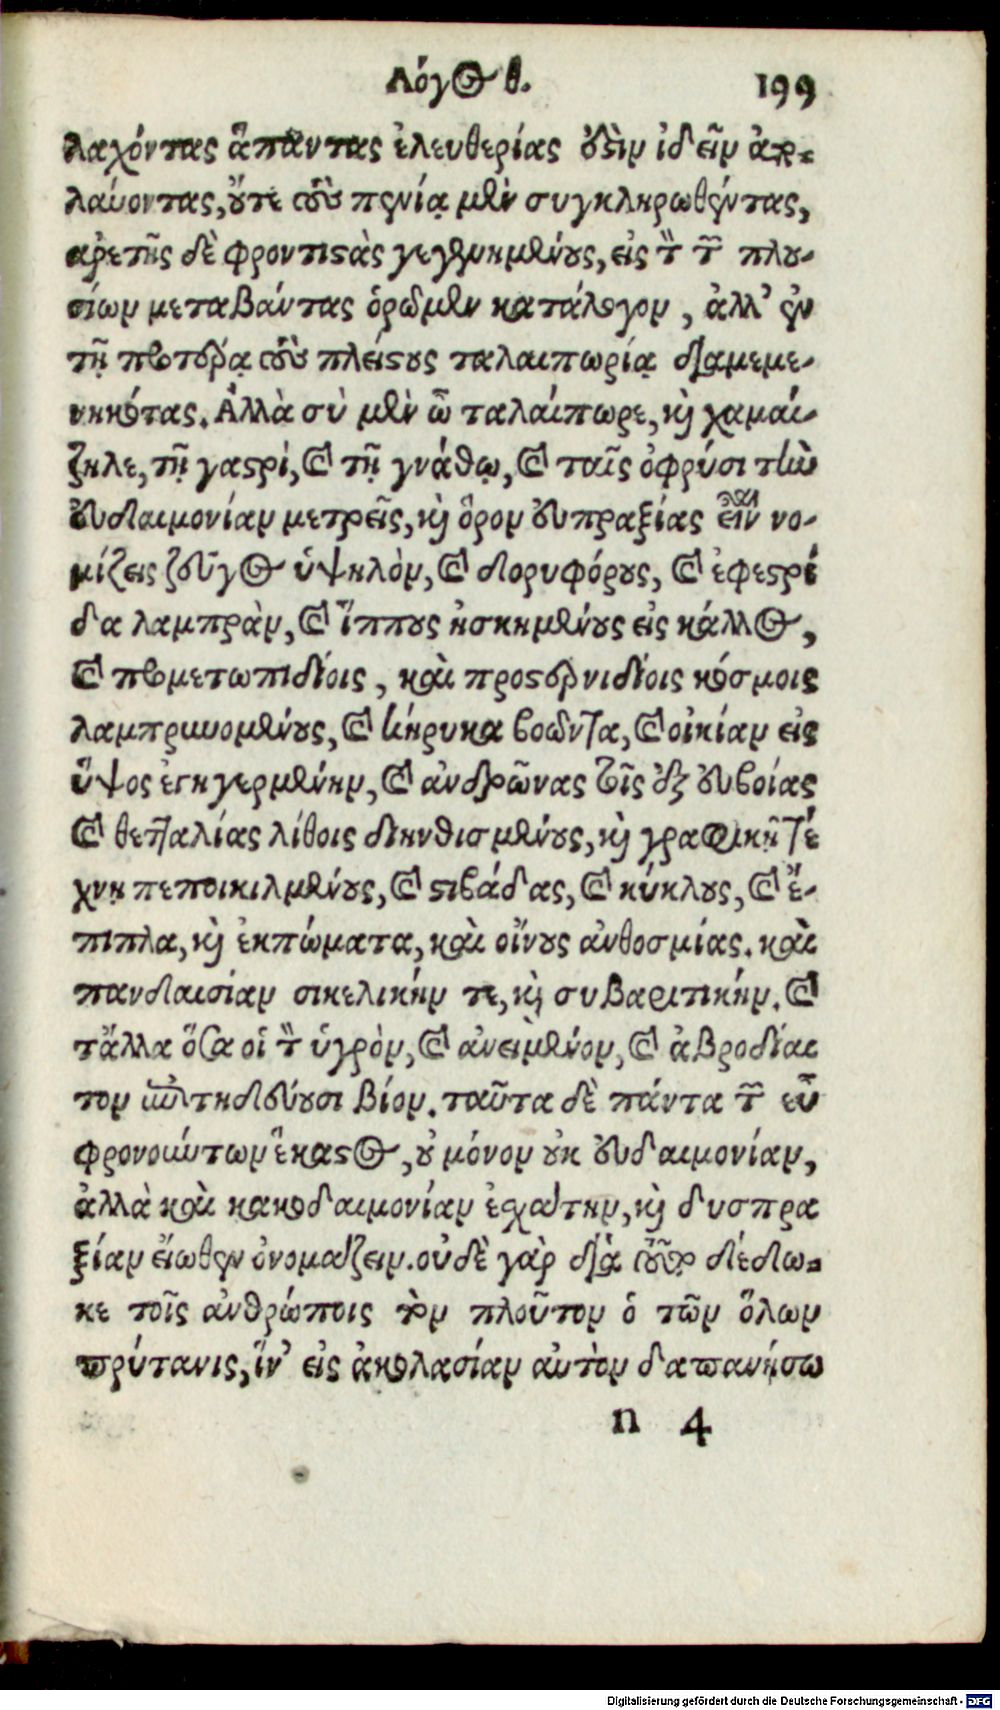 Λόγος θ. 199
λαχόντας ἅπαντας ἐλευθερίας ὄζιν ἰδεῖν ἀπο-
λαύοντας, οὔτε τοὺς πενίᾳ μὲν συγκληρωθέντας,
ἀρετῆς δὲ φροντιστὰς γεγενημένους, εἰς τὸν τῶν πλου-
σίων μεταβάντας ὁρῶμεν κατάλογον, ἀλλ' ἐν
τῇ προτέρᾳ τοὺς πλείστους ταλαιπωρίᾳ διαμεμε-
νηκότας. Ἀλλὰ σὺ μὲν ὦ ταλαίπωρε, καὶ χαμαί-
ζηλε, τῇ γαστρί, καὶ τῇ γνάθῳ, καὶ ταῖς ὀφρύσι τὴν
εὐδαιμονίαν μετρεῖς, καὶ ὅρον εὐπραξίας εἶναι νο-
μίζεις ζεῦγος ὑψηλὸν, καὶ δορυφόρους, καὶ ἐφεστρί
δα λαμπρὰν, καὶ ἵππους ἠσκημένους εἰς κάλλος,
καὶ προμετωπιδίοις, καὶ προστερνιδίοις κόσμοις
λαμπρυνομένους, καὶ κήρυκα βοῶντα, καὶ οἰκίαν εἰς
ὕψος ἐγηγερμένην, καὶ ἀνδρῶνας τοῖς ἐξ εὐβοίας
καὶ θετταλίας λίθοις διηνθισμένους, καὶ γραφικῇ τέ
χνῃ πεποικιλμένους, καὶ στιβάδας, καὶ κύκλους, καὶ ἔ-
πιπλα, καὶ ἐκπώματα, καὶ οἴνους ἀνθοσμίας. καὶ
πανδαισίαν σικελικήν τε, καὶ συβαριτικήν. καὶ
τἄλλα ὅσα οἱ τὸν ὑγρὸν, καὶ ἀνειμένον, καὶ ἁβροδίαι
τον ἐπιτηδεύουσι βίον. ταῦτα δὲ πάντα τῶν εὖ
φρονούντων ἕκαστος, οὐ μόνον οὐκ εὐδαιμονίαν,
ἀλλὰ καὶ κακοδαιμονίαν ἐσχάτην, καὶ δυσπρα
ξίαν εἴωθεν ὀνομάζειν. οὐδὲ γὰρ διὰ τοῦτο δέδω-
κε τοῖς ἀνθρώποις τὸν πλοῦτον ὁ τῶν ὅλων
πρύτανις, ἵν' εἰς ἀκολασίαν αὐτὸν δαπανήσω
n 4
Digitalisierung gefördert durch die Deutsche Forschungsgemeinschaft - DFG